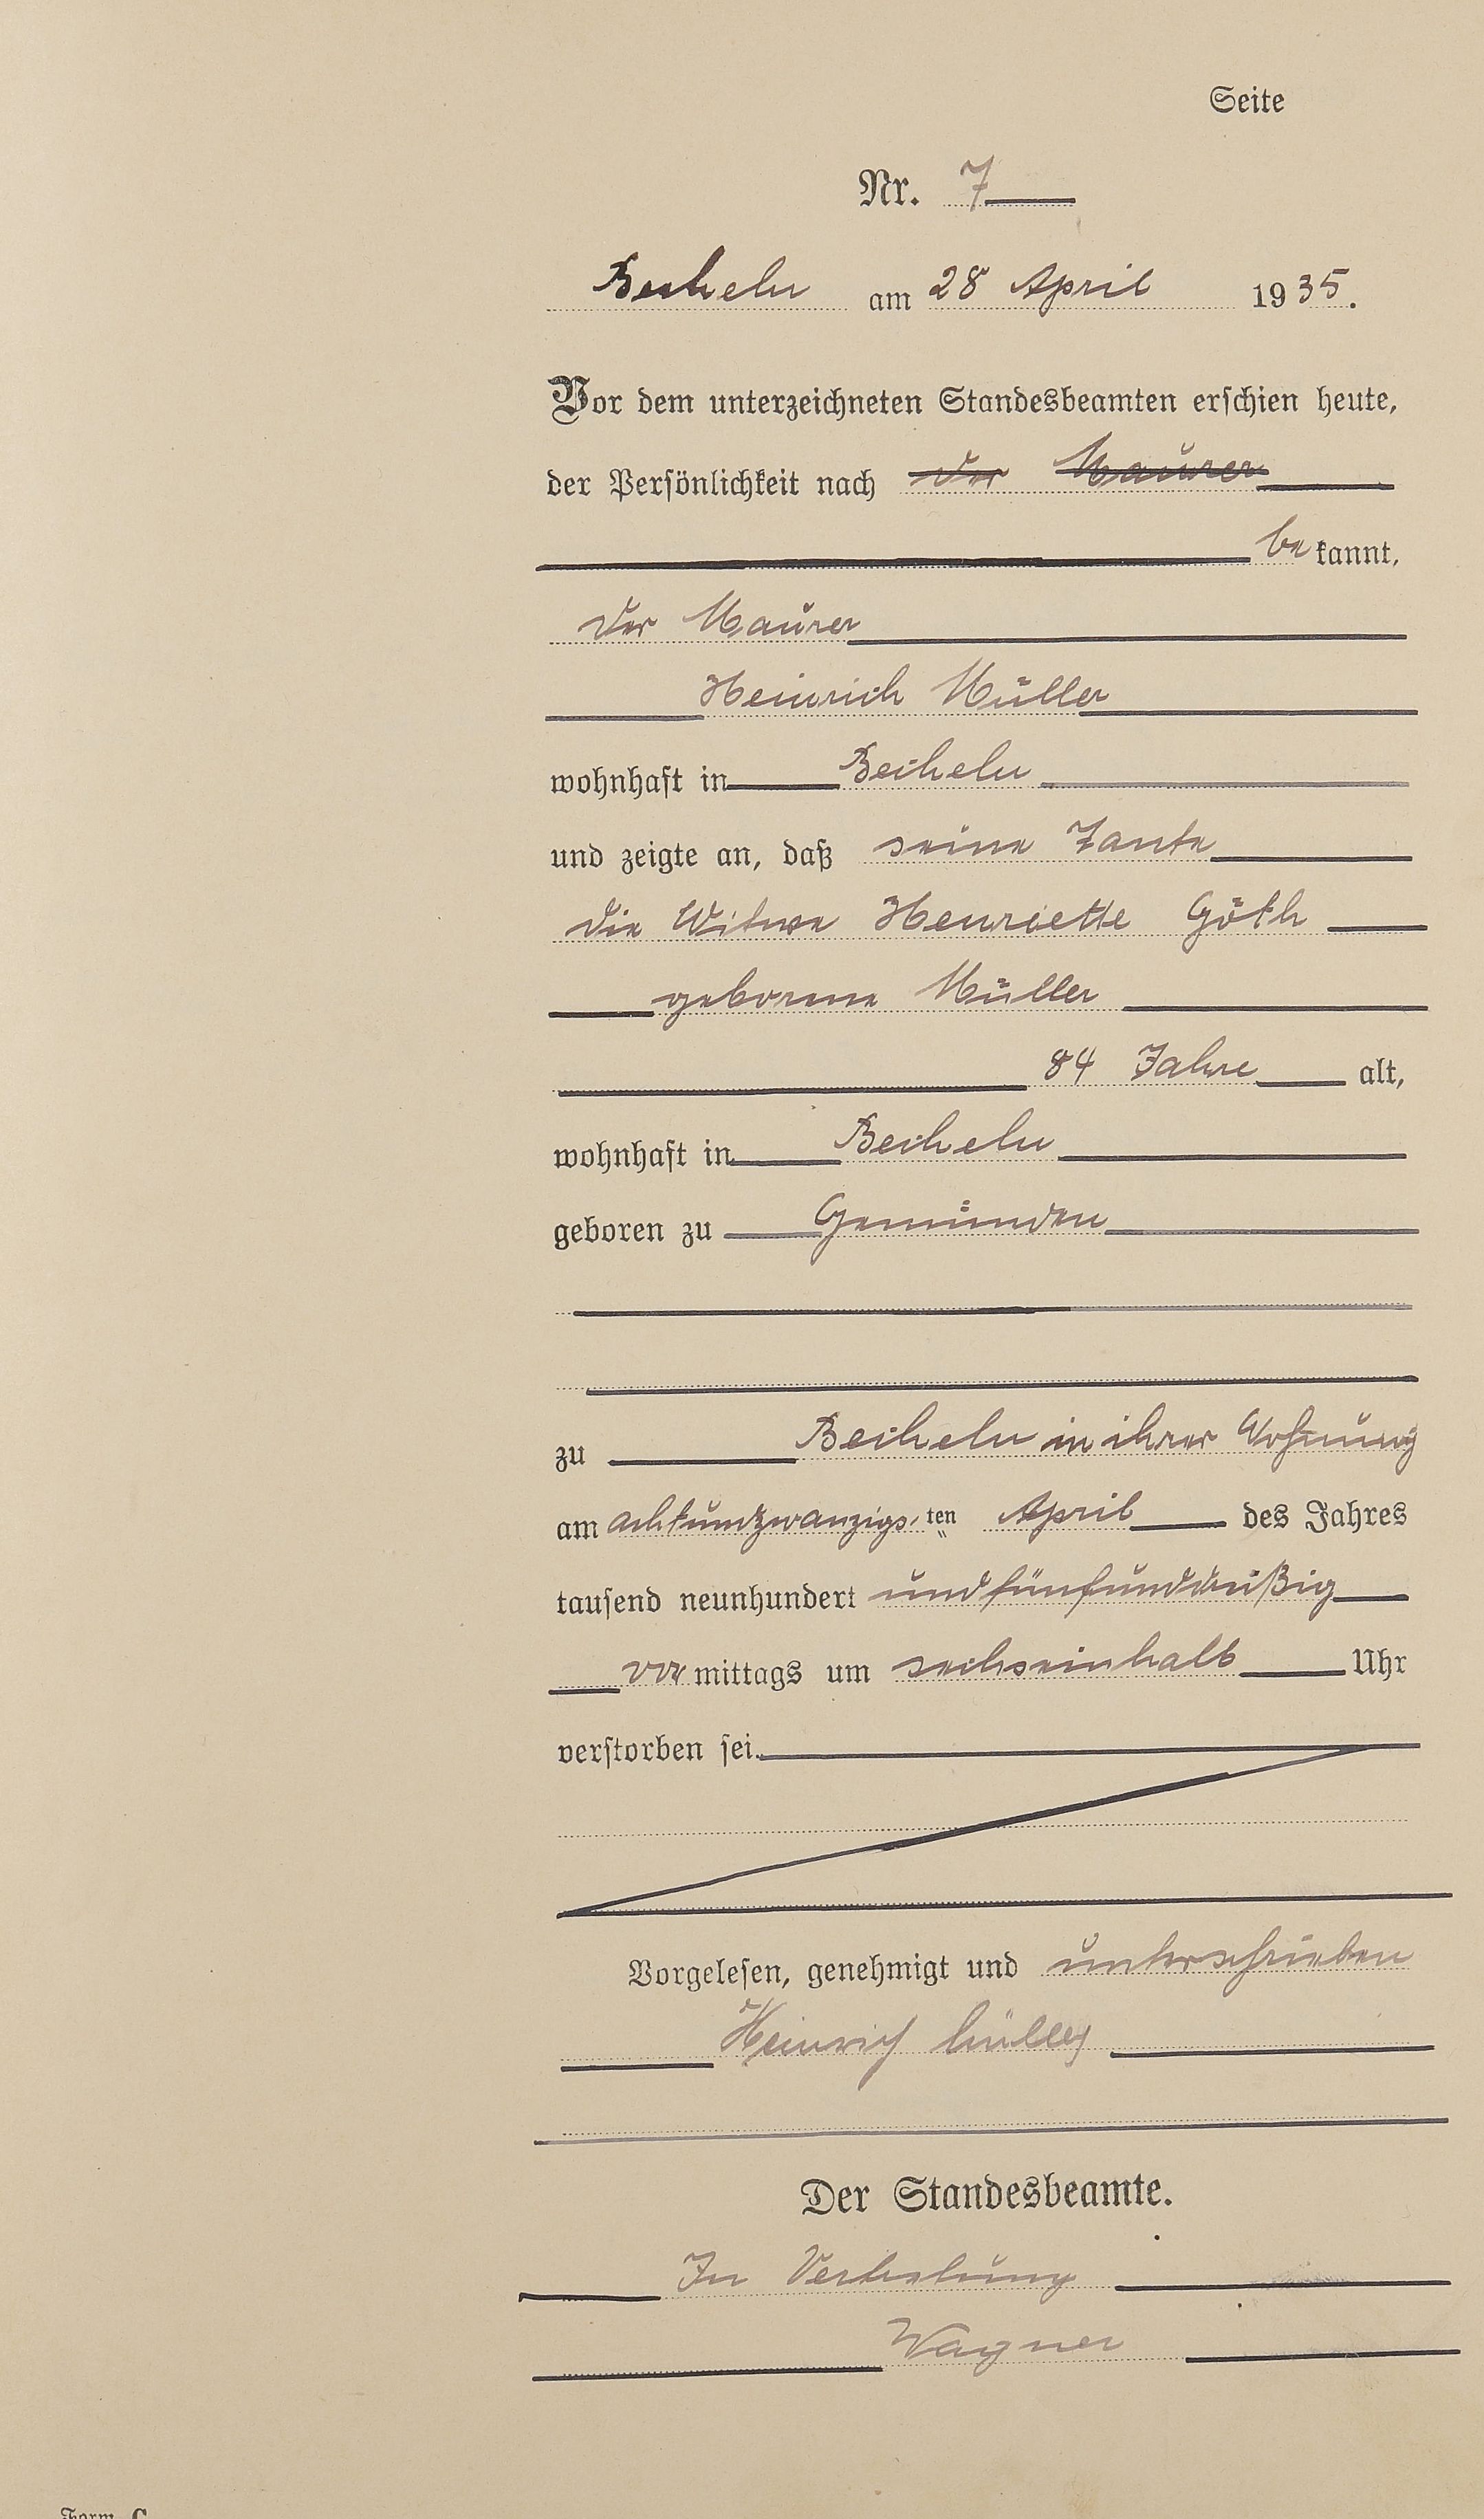 Seite
Nr. 7
Becheln am 28 April 1935.
Vor dem unterzeichneten Standesbeamten erschien heute,
der Persönlichkeit nach der Maurer
bekannt,
der Maurer
Heinrich Müller
wohnhaft in Becheln
und zeigte an, daß seine Tante
die Witwe Henriette Göth
geborene Müller
84 Jahre alt,
wohnhaft in Becheln
geboren zu Gemünden
zu Becheln in ihrer Wohnung
am achtundzwanzigsten April des Jahres
tausend neunhundert undfünfunddreißig
vormittags um sechseinhalb Uhr
verstorben sei.
Vorgelesen, genehmigt und unterschrieben
Heinrich Müller
Der Standesbeamte.
In Vertretung
Wagner
Form C